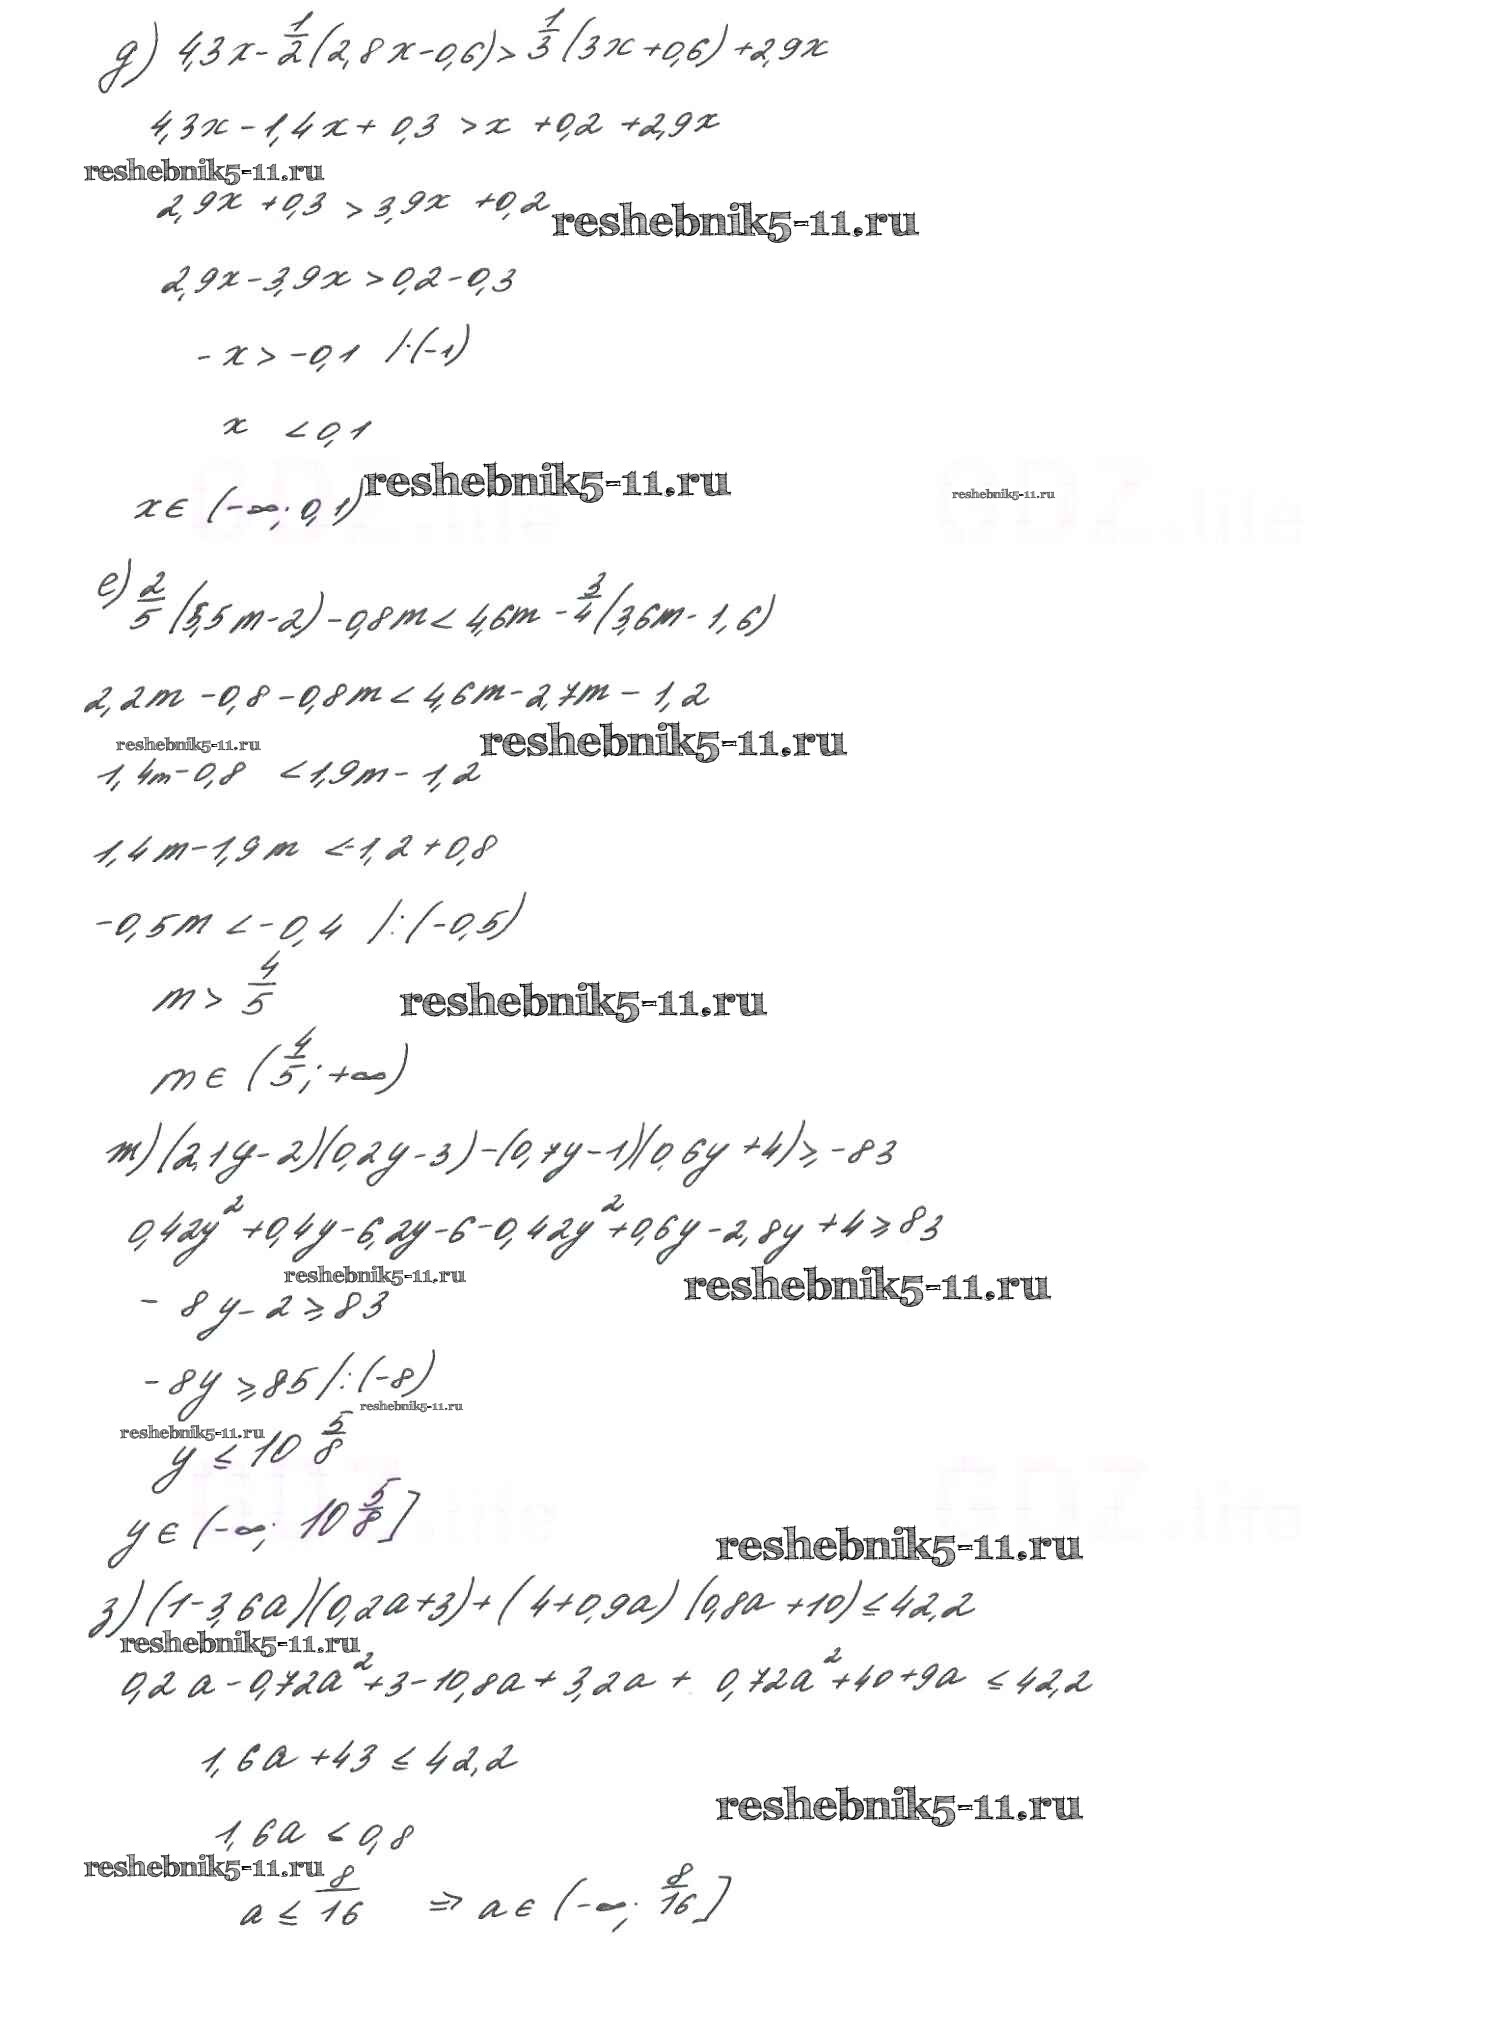 д) 4,3x - 1/2 (2,8x - 0,6) > 1/3 (3x + 0,6) + 2,9x
4,3x - 1,4x + 0,3 > x + 0,2 + 2,9x
reshebnik5-11.ru
2,9x + 0,3 > 3,9x + 0,2
reshebnik5-11.ru
2,9x - 3,9x > 0,2 - 0,3
- x > -0,1 /·(-1)
x < 0,1
reshebnik5-11.ru
reshebnik5-11.ru
x ∈ (-∞; 0,1)
GDZ.life
GDZ.life
е) 2/5 (5,5m - 2) - 0,8m < 4,6m - 3/4 (3,6m - 1,6)
2,2m - 0,8 - 0,8m < 4,6m - 2,7m - 1,2
reshebnik5-11.ru
reshebnik5-11.ru
1,4m - 0,8 < 1,9m - 1,2
1,4m - 1,9m < -1,2 + 0,8
-0,5m < -0,4 /:(-0,5)
m > 4/5
reshebnik5-11.ru
m ∈ (4/5; +∞)
т) (2,1y - 2)(0,2y - 3) - (0,7y - 1)(0,6y + 4) ≥ -83
0,42y² + 0,4y - 6,2y - 6 - 0,42y² + 0,6y - 2,8y + 4 ≥ 83
reshebnik5-11.ru
reshebnik5-11.ru
- 8y - 2 ≥ 83
- 8y ≥ 85 /:(-8)
reshebnik5-11.ru
reshebnik5-11.ru
y ≤ 10 5/8
GDZ.life
GDZ.life
y ∈ (-∞; 10 5/8]
reshebnik5-11.ru
з) (1 - 3,6a)(0,2a + 3) + (4 + 0,9a)(0,8a + 10) ≤ 42,2
reshebnik5-11.ru
0,2a - 0,72a² + 3 - 10,8a + 3,2a + 0,72a² + 40 + 9a ≤ 42,2
1,6a + 43 ≤ 42,2
reshebnik5-11.ru
1,6a ≤ 0,8
reshebnik5-11.ru
a ≤ 8/16 ⇒ a ∈ (-∞; 8/16]